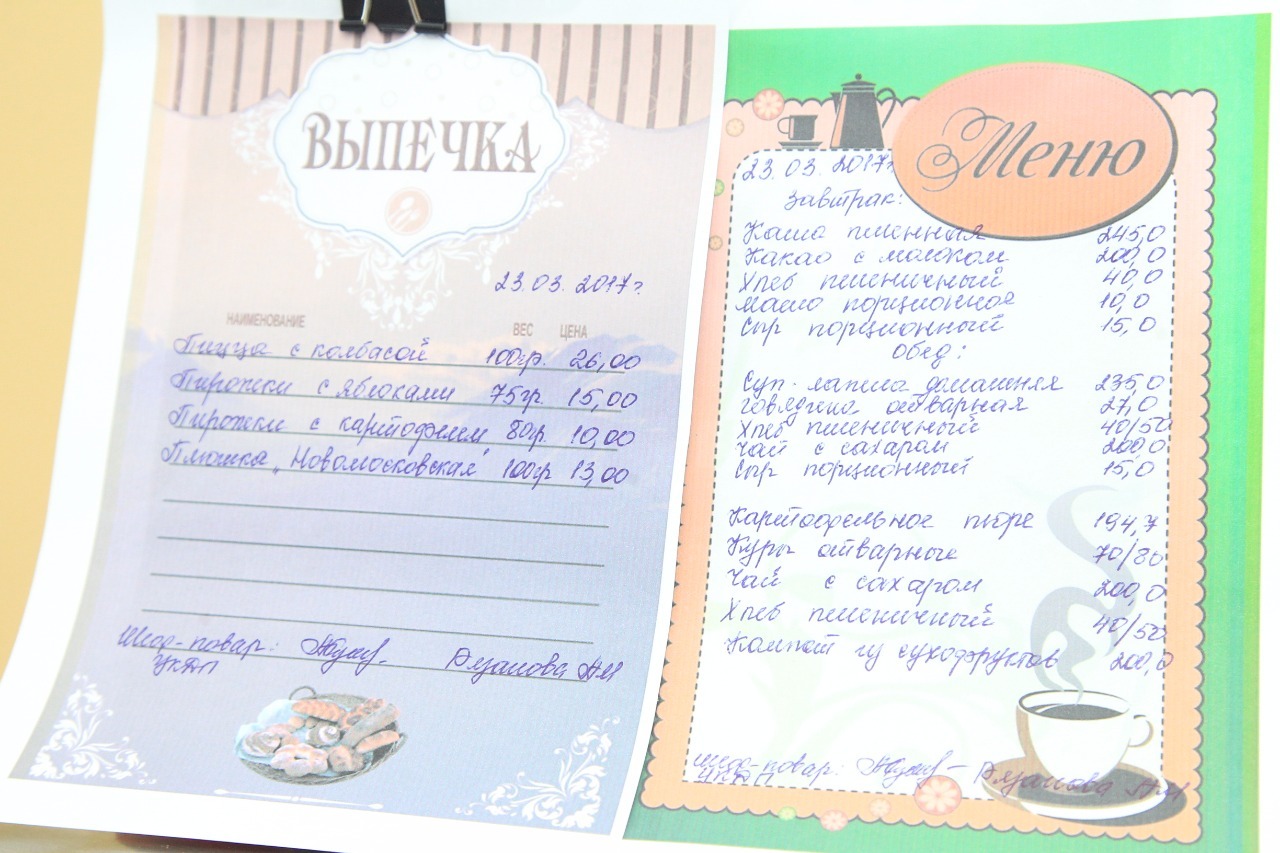 ВЫПЕЧКА
23.03.2017г.
НАИМЕНОВАНИЕ ВЕС ЦЕНА
Пицца с колбасой 100гр. 26,00
Пирожки с яблоками 75гр 15,00
Пирожки с картофелем 80гр. 10,00
Плюшка „Новомосковская" 100гр 13,00
Шеф-повар:
УКПП
Меню
23.03.2017г
Завтрак:
Каша пшенная 245,0
Какао с молоком 200,0
Хлеб пшеничный 40,0
масло порционное 10,0
Сыр порционный 15,0
Обед:
Суп-лапша домашняя 235,0
говядина отварная 27,0
Хлеб пшеничный 40/50
чай с сахаром 200,0
Сыр порционный 15,0
Картофельное пюре 194,7
Куры отварные 70/80
Чай с сахаром 200,0
Хлеб пшеничный 40/50
Компот из сухофруктов 200,0
Шеф-повар: